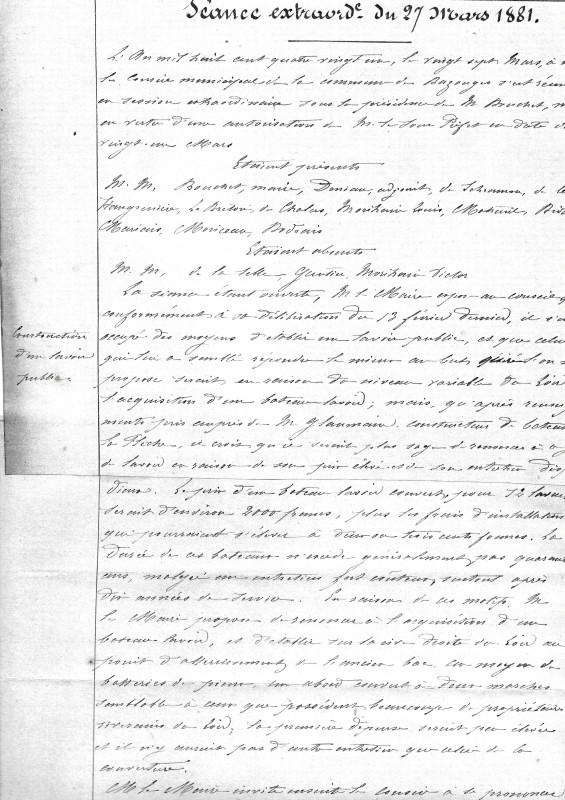 Séance extraord.e du 27 Mars 1881.
L'An mil huit cent quatre vingt un, le vingt sept Mars, à
le Conseil municipal de la commune de Bazouges s'est réuni
en session extraordinaire sous la présidence de M. Bouchet,
en vertu d'une autorisation de M. le Sous Préfet en date
vingt un Mars
Etaient présents
M. M. Bouchet, maire, Deniau, adjoint, de
Le Breton, de Chalus, Morihain Louis,
Morceau,
Etaient absents
M. M. de la Selle, Gautier, Morihain Victor
La séance étant ouverte, M. le Maire expose au conseil
conformément à sa délibération du 13 février dernier, il s'
occupé des moyens d'établir un lavoir public, et que celui
qui lui a semblé répondre le mieux au but qu'on
propose serait en raison du niveau variable du Loir
l'acquisition d'un bateau lavoir; mais, qu'après
pris auprès de M. constructeur de bateaux
la Flèche, il croit qu'il serait plus sage de renoncer à
de lavoir en raison de son prix élevé et de son entretien
Construction
d'un lavoir
public.
dieux. Le prix d'un bateau lavoir couvert, pour 12
serait d'environ 2000 francs, plus les frais d'installation
qui pourraient s'élever à deux ou trois cents francs. La
durée de ces bateaux n'excède généralement pas quarante
ans, malgré un entretien fort coûteux, surtout après
dix années de service. En raison de ces motifs, M.
le Maire propose de renoncer à l'acquisition d'un
bateau lavoir, et d'établir sur la rive droite du Loir au
point d'atterrissement de l'ancien bac au moyen de
de pierre, un abord couvert à deux marches
semblable à ceux que possèdent beaucoup de propriétaires
riverains du Loir, la première dépense serait peu élevée
et il n'y aurait pas d'autre entretien que celui de la
couverture.
M. le Maire invite ensuite le conseil à se prononcer